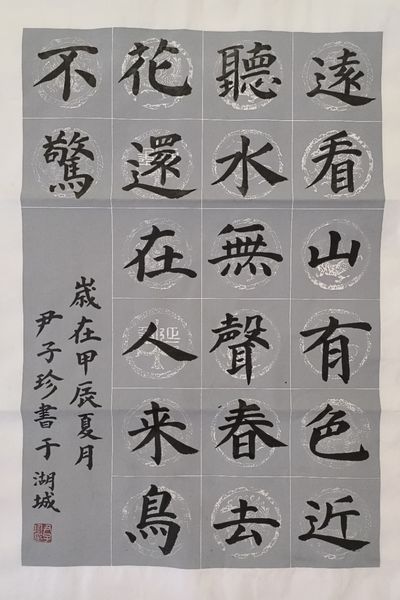 遠看山有色近
聽水無聲春去
花還在人来鳥
不驚
歲在甲辰夏月
尹子珍書于湖城